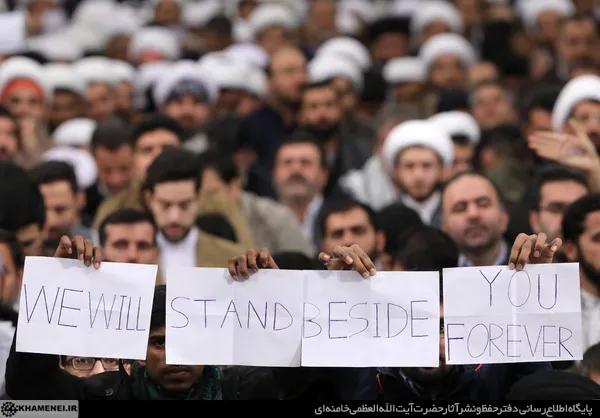 WE WILL STAND BESIDE YOU
FOREVER
KHAMENEI.IR
پایگاه اطلاع رسانی دفتر حفظ و نشر آثار حضرت آیت الله العظمی خامنه‌ای